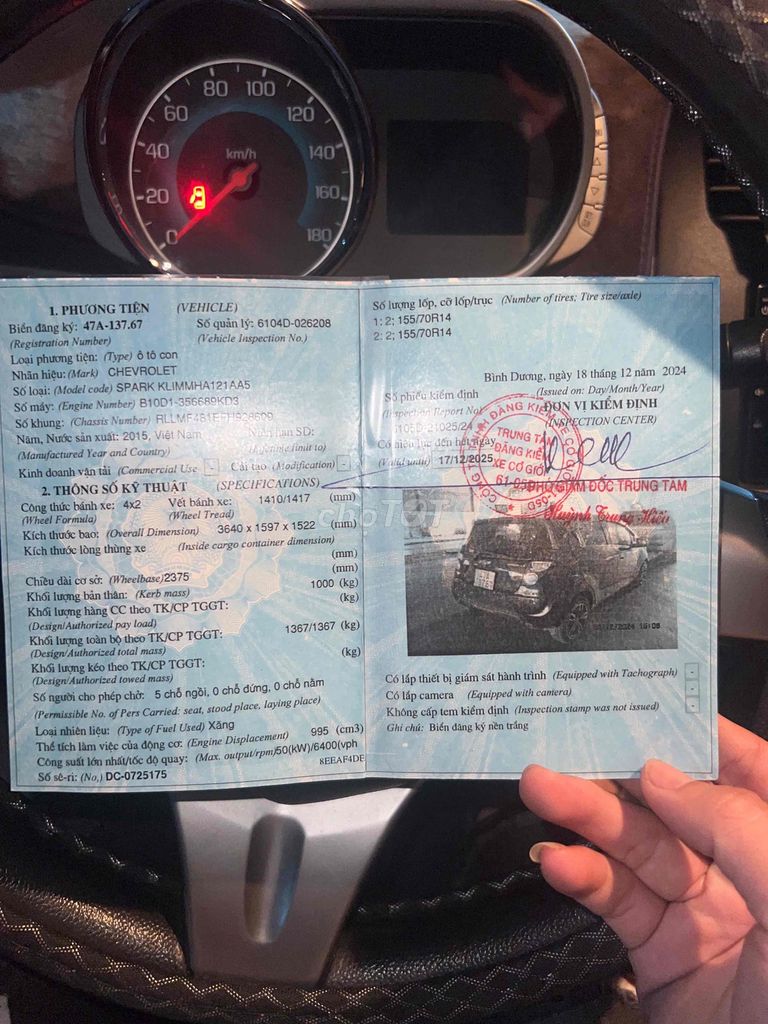 80 100
60 120
40 km/h 140
20 160
0 180
1. PHƯƠNG TIỆN (VEHICLE)
Biển đăng ký: 47A-137.67 Số quản lý: 6104D-026208
(Registration Number) (Vehicle Inspection No.)
Loại phương tiện: (Type) ô tô con
Nhãn hiệu: (Mark) CHEVROLET
Số loại: (Model code) SPARK KLIMMHA121AA5
Số máy: (Engine Number) B10D1-356689KD3
Số khung: (Chassis Number)
Năm, Nước sản xuất: 2015, Việt Nam Niên hạn SD:
(Manufactured Year and Country) (Lifetime limit to)
Kinh doanh vận tải (Commercial Use) - Cải tạo (Modification) -
2. THÔNG SỐ KỸ THUẬT (SPECIFICATIONS)
Công thức bánh xe: 4x2 Vết bánh xe: 1410/1417 (mm)
(Wheel Formula) (Wheel Tread)
Kích thước bao: (Overall Dimension) 3640 x 1597 x 1522 (mm)
Kích thước lòng thùng xe (Inside cargo container dimension)
(mm)
Chiều dài cơ sở: (Wheelbase) 2375 (mm)
Khối lượng bản thân: (Kerb mass) 1000 (kg)
Khối lượng hàng CC theo TK/CP TGGT: (kg)
(Design/Authorized pay load)
Khối lượng toàn bộ theo TK/CP TGGT: 1367/1367 (kg)
(Design/Authorized total mass)
Khối lượng kéo theo TK/CP TGGT: (kg)
(Design/Authorized towed mass)
Số người cho phép chở: 5 chỗ ngồi, 0 chỗ đứng, 0 chỗ nằm
(Permissible No. of Pers Carried: seat, stood place, laying place)
Loại nhiên liệu: (Type of Fuel Used) Xăng
Thể tích làm việc của động cơ: (Engine Displacement) 995 (cm3)
Công suất lớn nhất/tốc độ quay: (Max. output/rpm) 50(kW)/6400(vph
Số sê-ri: (No.) DC-0725175 8EEAF4DE
Số lượng lốp, cỡ lốp/trục (Number of tires; Tire size/axle)
1: 2; 155/70R14
2: 2; 155/70R14
Bình Dương, ngày 18 tháng 12 năm 2024
(Issued on: Day/Month/Year)
Số phiếu kiểm định ĐƠN VỊ KIỂM ĐỊNH
(Inspection Report No) (INSPECTION CENTER)
Có hiệu lực đến hết ngày
(Valid until) 17/12/2025
TRUNG TÂM
ĐĂNG KIỂM
XE CƠ GIỚI
61-05D
PHÓ GIÁM ĐỐC TRUNG TÂM
Huỳnh Trung Hiếu
chợTỐT
/12/2024 16:06
Có lắp thiết bị giám sát hành trình (Equipped with Tachograph) -
Có lắp camera (Equipped with camera) -
Không cấp tem kiểm định (Inspection stamp was not issued) -
Ghi chú: Biển đăng ký nền trắng